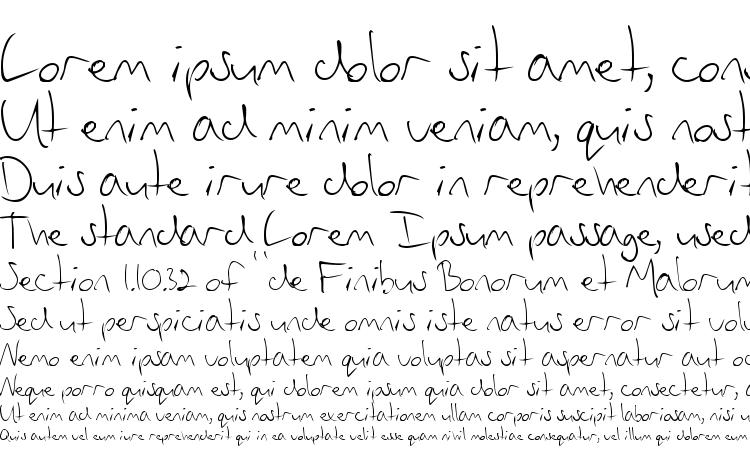 Lorem ipsum dolor sit amet, cons
Ut enim ad minim veniam, quis nost
Duis aute irure dolor in reprehenderit
The standard Lorem Ipsum passage, used
Section 1.10.32 of "de Finibus Bonorum et Malorum
Sed ut perspiciatis unde omnis iste natus error sit volu
Nemo enim ipsam voluptatem quia voluptas sit aspernatur aut od
Neque porro quisquam est, qui dolorem ipsum quia dolor sit amet, consectetur,
Ut enim ad minima veniam, quis nostrum exercitationem ullam corporis suscipit laboriosam, nisi u
Quis autem vel eum iure reprehenderit qui in ea voluptate velit esse quam nihil molestiae consequatur, vel illum qui dolorem eum